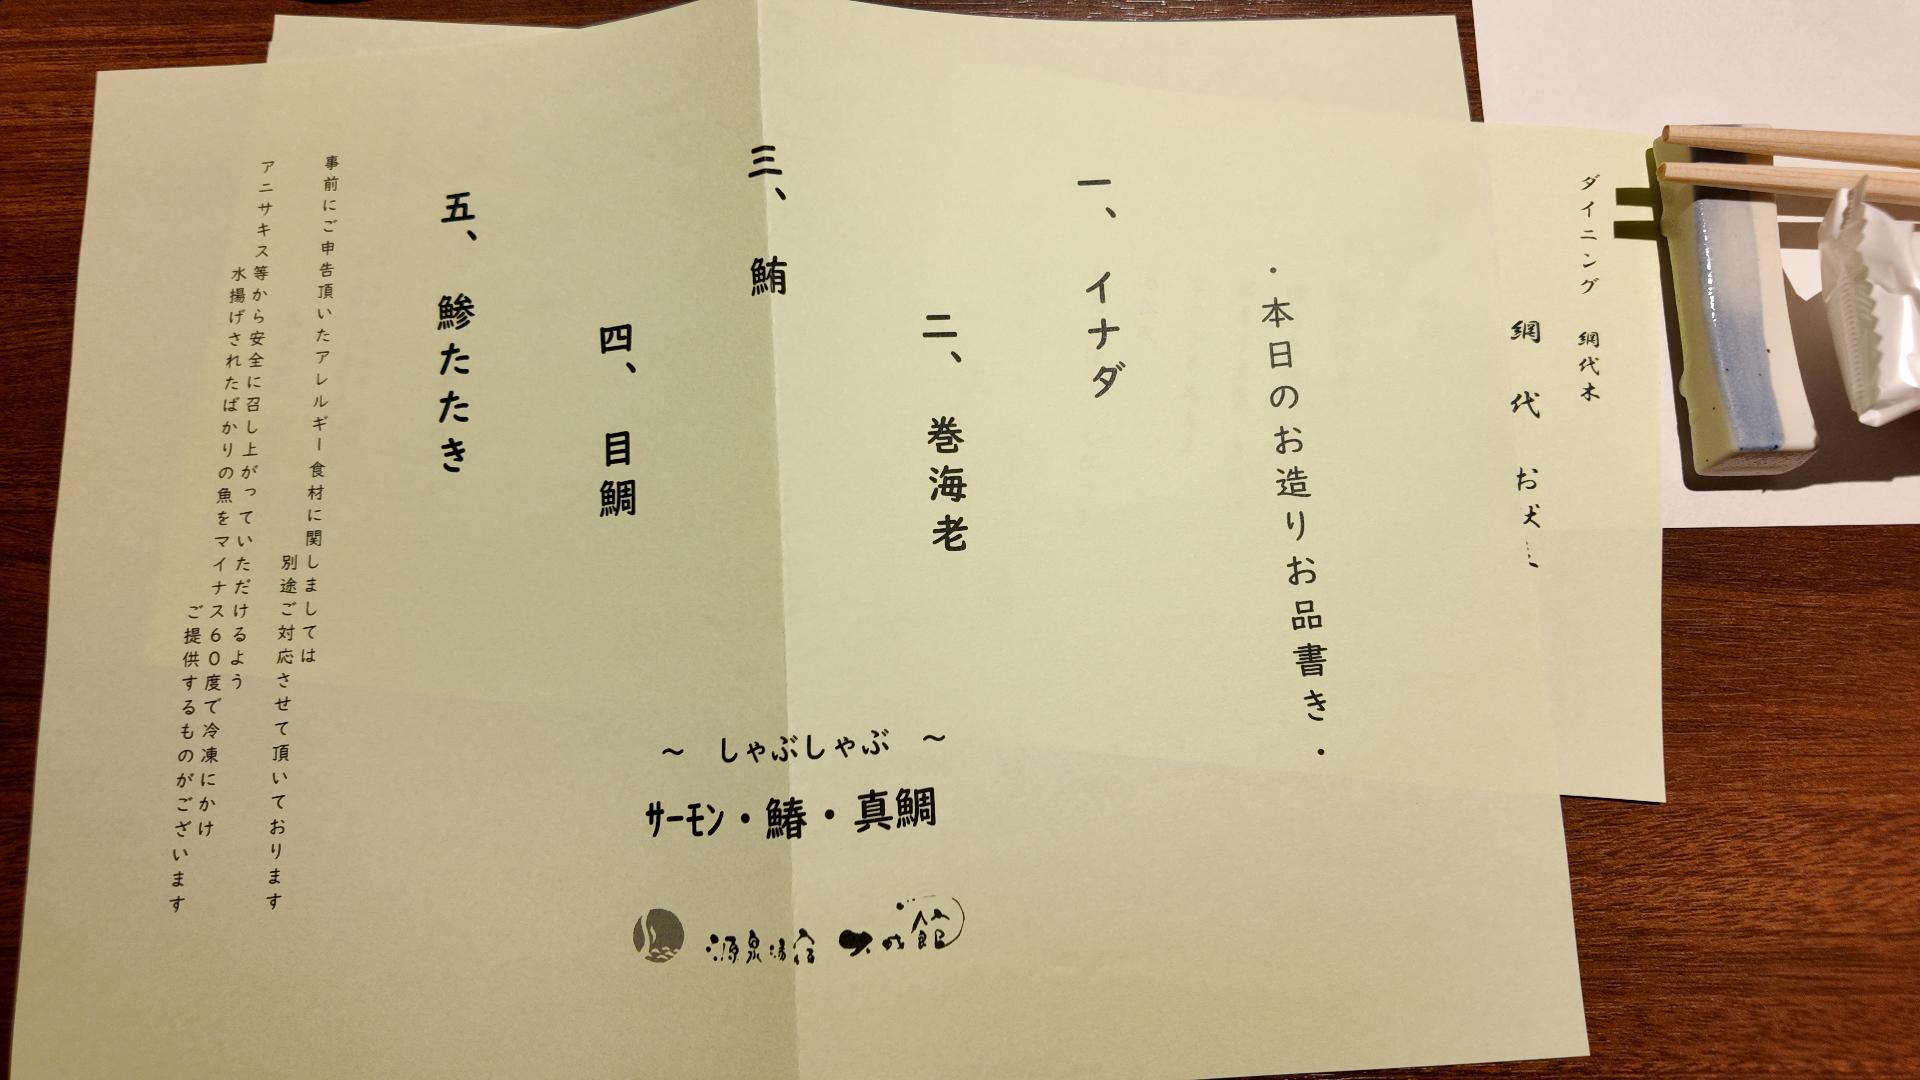 ダイニング 網代木
網代 お
・本日のお造りお品書き・
一、イナダ
二、巻海老
三、鮪
四、目鯛
五、鯵たたき
～ しゃぶしゃぶ ～
サーモン・鰆・真鯛
事前にご申告頂いたアレルギー食材に関しましては
別途ご対応させて頂いております
アニサキス等から安全に召し上がっていただけるよう
水揚げされたばかりの魚をマイナス60度で冷凍にかけ
ご提供するものがございます
源泉湯宿 館